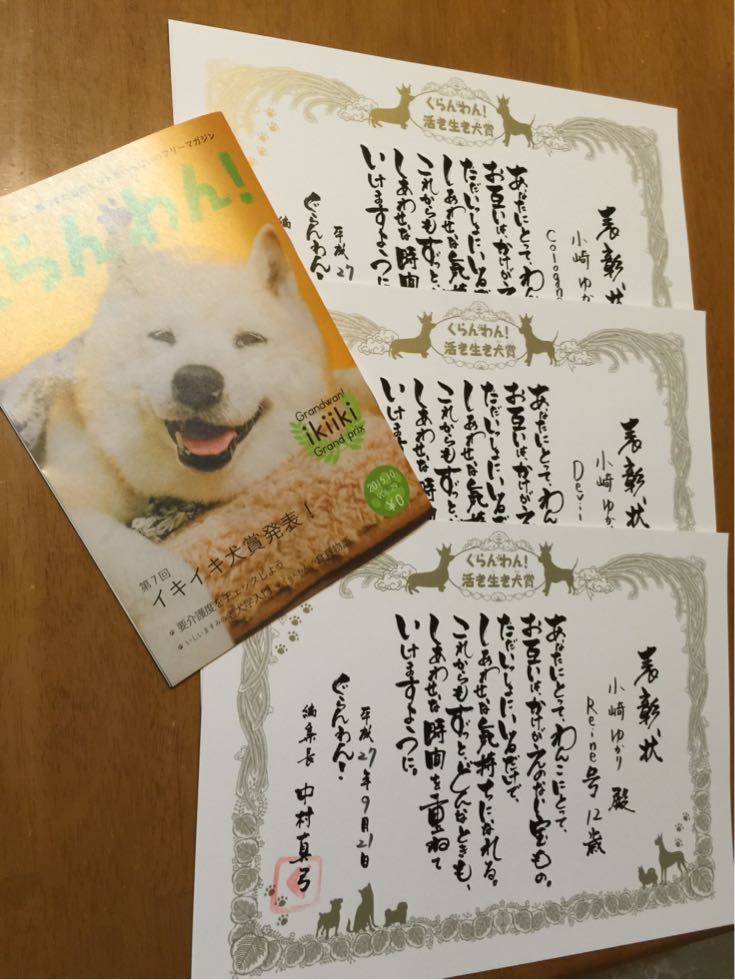 フリーマガジン
ぐらんわん!
Grandwan!
ikiiki
Grand prix
2015.10
¥0
第7回
イキイキ犬賞発表!
要介護度をチェックしよう
ぐらんわん!
活き生き犬賞
表彰状
小崎ゆか
Cologn
あなたにとって、わん
お互いは、かけがえ
ただいっしょにいるだ
しあわせな気持
これからもずっと、
しあわせな時間
いけますように
平成27
ぐらんわん!
編
ぐらんわん!
活き生き犬賞
表彰状
小崎ゆか
Devi
あなたにとって、わん
お互いは、かけがえ
ただいっしょにいるだ
しあわせな気持
これからもずっと、
しあわせな時間
いけます
ぐらんわん!
活き生き犬賞
表彰状
小崎ゆかり 殿
Reine号 12歳
あなたにとって、わんこにとって、
お互いは、かけがえのない宝もの。
ただいっしょにいるだけで、
しあわせな気持ちになれる。
これからもずっと、どんなときも、
しあわせな時間を重ねて
いけますように。
平成27年9月21日
ぐらんわん!
編集長 中村真弓